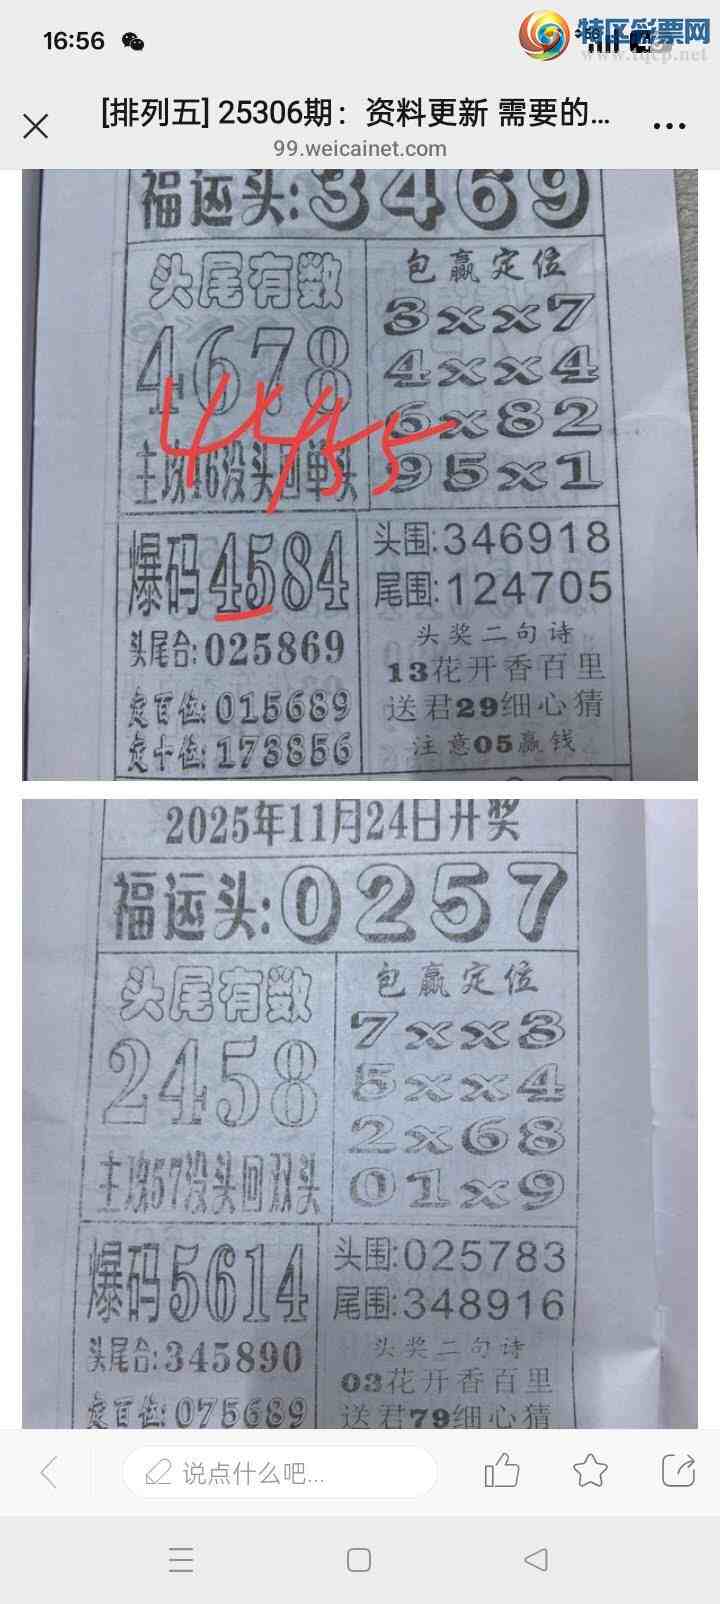 16:56
特区彩票网
www.tqcp.net
[排列五] 25306期：资料更新 需要的...
99.weicainet.com
福运头:3469
头尾有数
4678
主攻46没头回单头
包赢定位
3xx7
4xx4
6x82
95x1
爆码4584
头尾合:025869
定百位:015689
定十位:173856
头围:346918
尾围:124705
头奖二句诗
13花开香百里
送君29细心猜
注意05赢钱
2025年11月24日开奖
福运头:0257
头尾有数
2458
主攻57没头回双头
包赢定位
7xx3
5xx4
2x68
01x9
爆码5614
头尾合:345890
定百位:075689
头围:025783
尾围:348916
头奖二句诗
03花开香百里
送君79细心猜
说点什么吧...